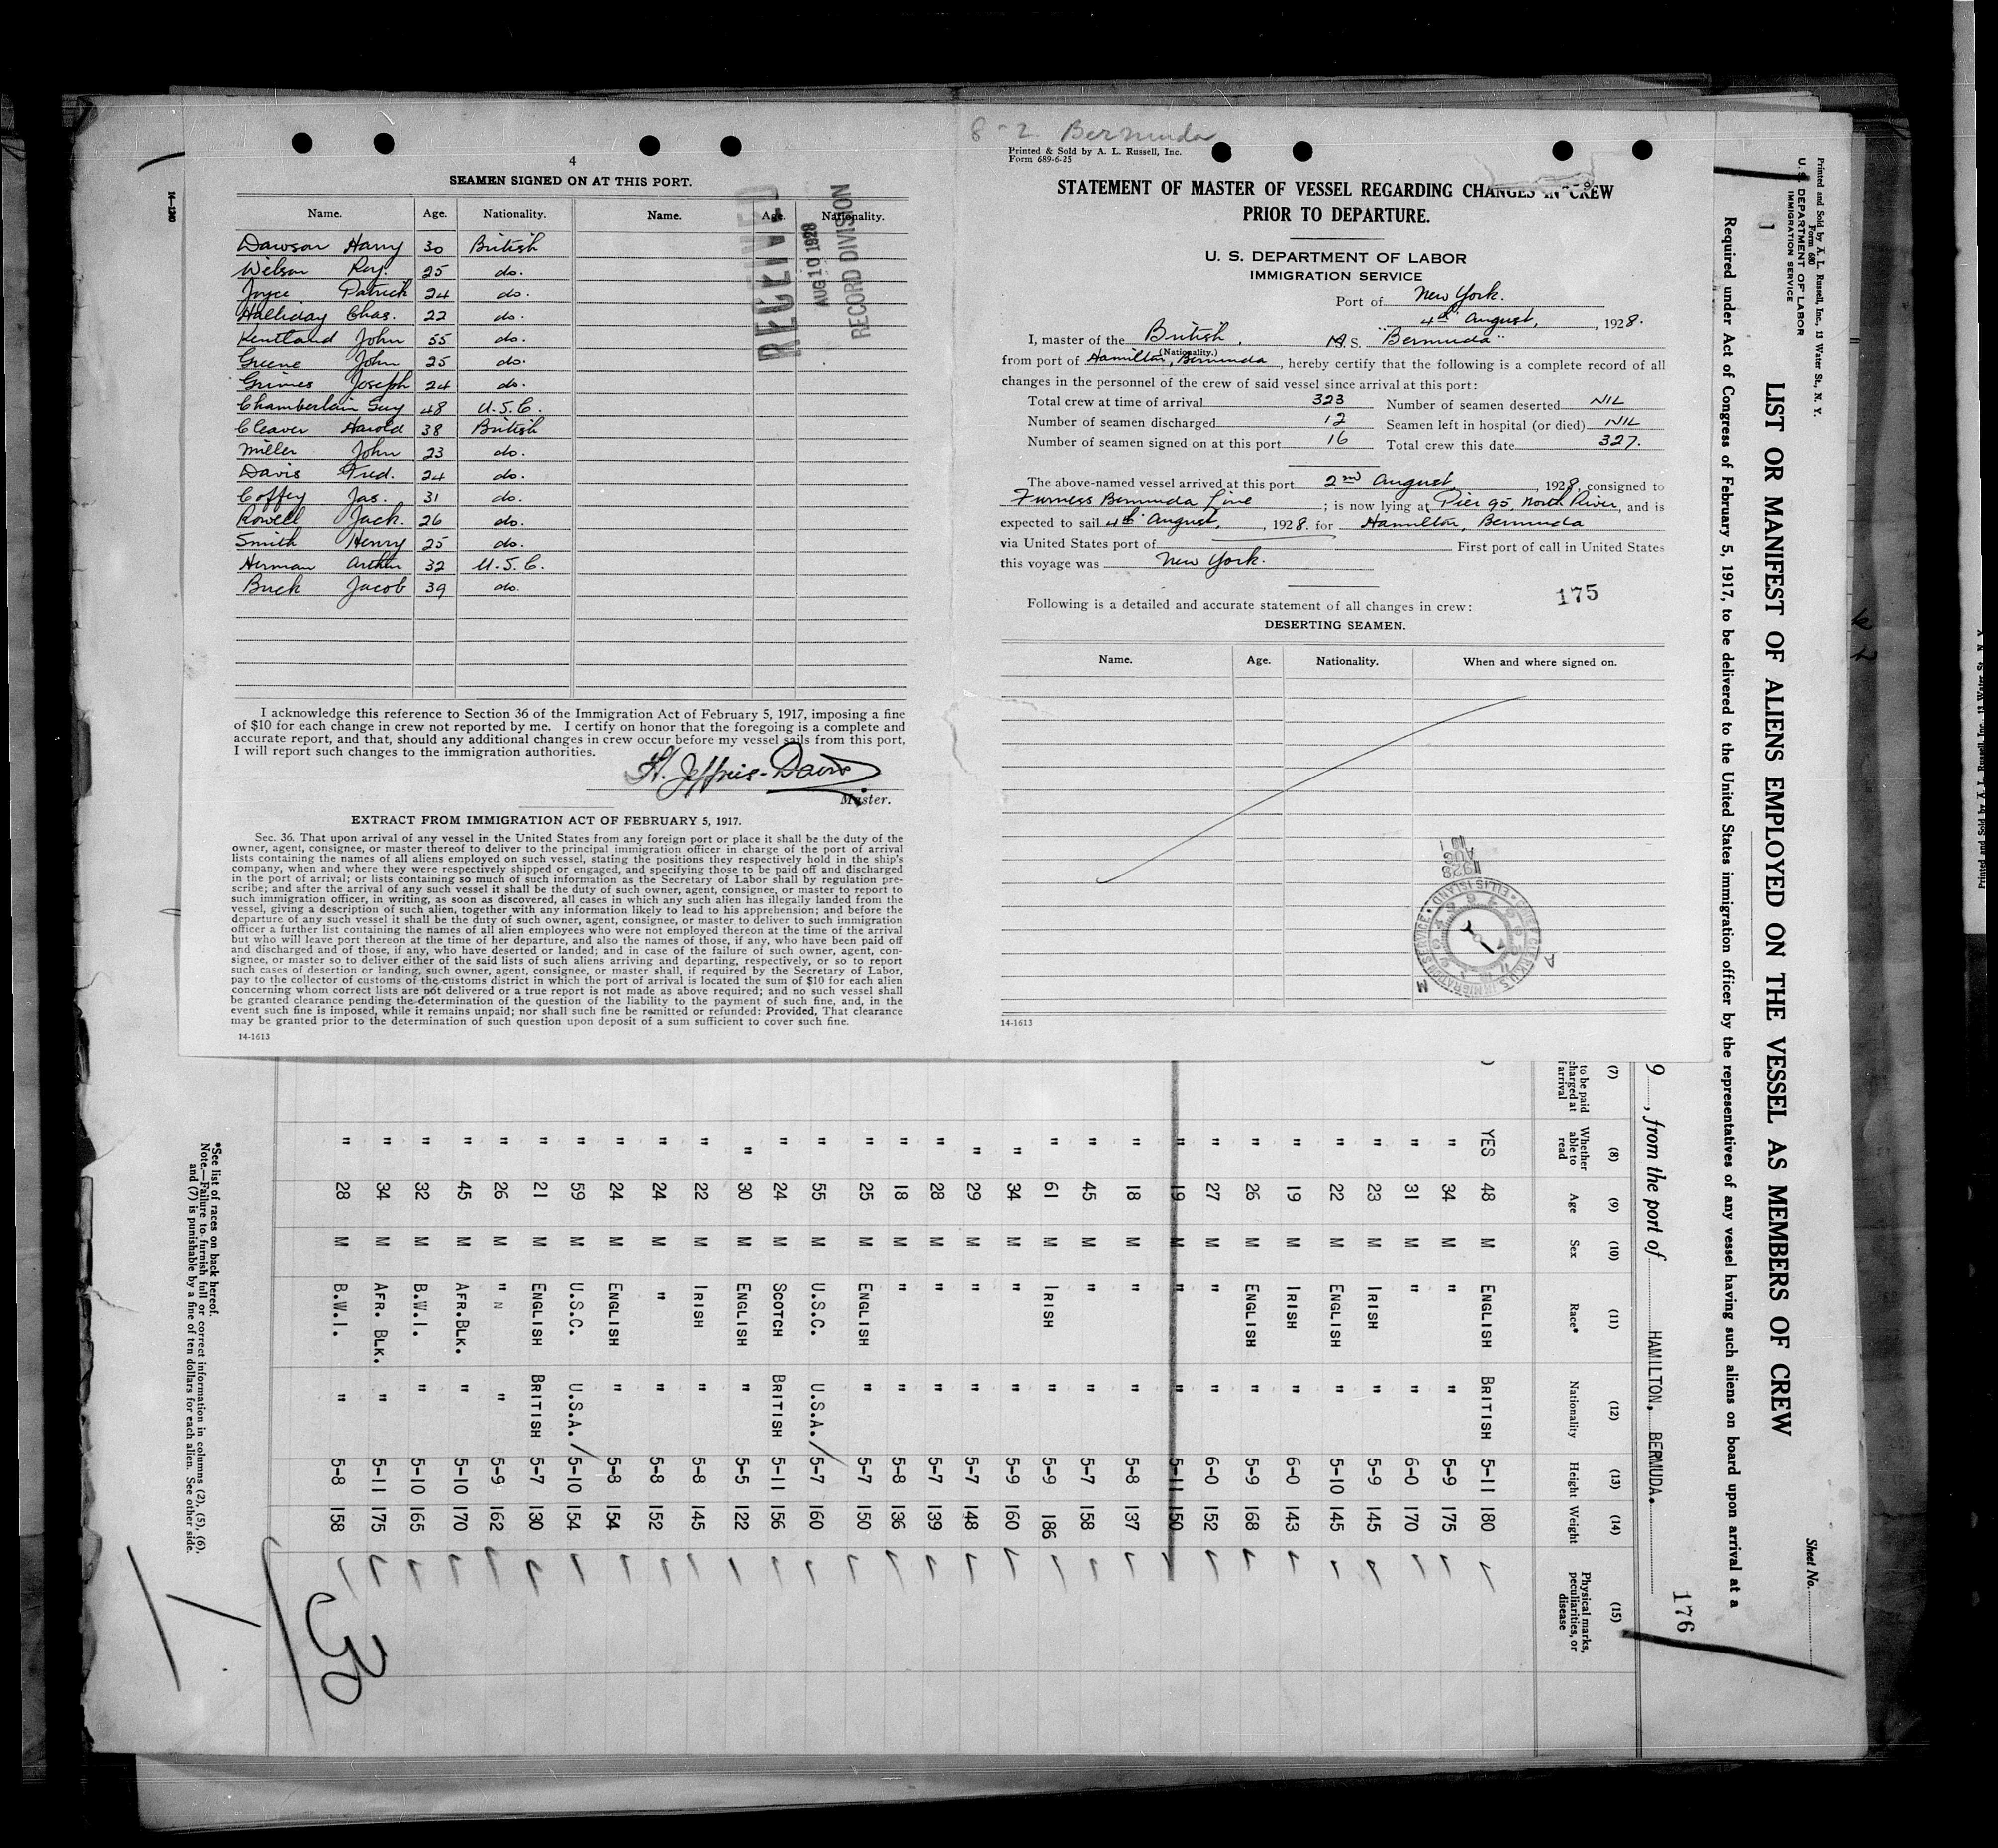 4
SEAMEN SIGNED ON AT THIS PORT.
Name. Age. Nationality. Name. Age. Nationality.
Dawson Harry 30 British
Wilson Roy. 25 do.
Joyce Patrick 24 do.
Halliday Chas. 22 do.
Kentland John 55 do.
Greene John 25 do.
Grimes Joseph 24 do.
Chamberlain Guy 48 U.S.C.
Cleaver Harold 38 British
Miller John 23 do.
Davis Fred. 24 do.
Coffey Jas. 31 do.
Rowell Jack. 26 do.
Smith Henry 25 do.
Herman Arthur 32 U.S.C.
Buck Jacob 39 do.
RECEIVED
AUG 10 1928
RECORD DIVISION
I acknowledge this reference to Section 36 of the Immigration Act of February 5, 1917, imposing a fine
of $10 for each change in crew not reported by me. I certify on honor that the foregoing is a complete and
accurate report, and that, should any additional changes in crew occur before my vessel sails from this port,
I will report such changes to the immigration authorities.
H. Jeffries-Davis
Master.
EXTRACT FROM IMMIGRATION ACT OF FEBRUARY 5, 1917.
Sec. 36. That upon arrival of any vessel in the United States from any foreign port or place it shall be the duty of the
owner, agent, consignee, or master thereof to deliver to the principal immigration officer in charge of the port of arrival
lists containing the names of all aliens employed on such vessel, stating the positions they respectively hold in the ship's
company, when and where they were respectively shipped or engaged, and specifying those to be paid off and discharged
in the port of arrival; or lists containing so much of such information as the Secretary of Labor shall by regulation pre-
scribe; and after the arrival of any such vessel it shall be the duty of such owner, agent, consignee, or master to report to
such immigration officer, in writing, as soon as discovered, all cases in which any such alien has illegally landed from the
vessel, giving a description of such alien, together with any information likely to lead to his apprehension; and before the
departure of any such vessel it shall be the duty of such owner, agent, consignee, or master to deliver to such immigration
officer a further list containing the names of all alien employees who were not employed thereon at the time of the arrival
but who will leave port thereon at the time of her departure, and also the names of those, if any, who have been paid off
and discharged and of those, if any, who have deserted or landed; and in case of the failure of such owner, agent, con-
signee, or master so to deliver either of the said lists of such aliens arriving and departing, respectively, or so to report
such cases of desertion or landing, such owner, agent, consignee, or master shall, if required by the Secretary of Labor,
pay to the collector of customs of the customs district in which the port of arrival is located the sum of $10 for each alien
concerning whom correct lists are not delivered or a true report is not made as above required; and no such vessel shall
be granted clearance pending the determination of the question of the liability to the payment of such fine, and, in the
event such fine is imposed, while it remains unpaid; nor shall such fine be remitted or refunded: Provided, That clearance
may be granted prior to the determination of such question upon deposit of a sum sufficient to cover such fine.
14-1613
14-1240
8-2 Bermuda
Printed & Sold by A. L. Russell, Inc.
Form 689-6-25
STATEMENT OF MASTER OF VESSEL REGARDING CHANGES IN CREW
PRIOR TO DEPARTURE.
U. S. DEPARTMENT OF LABOR
IMMIGRATION SERVICE
Port of New York.
4th August, , 1928.
I, master of the British. M.S. "Bermuda"
(Nationality.)
from port of Hamilton, Bermuda, hereby certify that the following is a complete record of all
changes in the personnel of the crew of said vessel since arrival at this port:
Total crew at time of arrival 323 Number of seamen deserted NIL
Number of seamen discharged 12 Seamen left in hospital (or died) NIL
Number of seamen signed on at this port 16 Total crew this date 327.
The above-named vessel arrived at this port 2nd August, 1928, consigned to
Furness Bermuda Line; is now lying at Pier 95 North River, and is
expected to sail 4th August, , 1928. for Hamilton, Bermuda
via United States port of First port of call in United States
this voyage was New York.
175
Following is a detailed and accurate statement of all changes in crew:
DESERTING SEAMEN.
Name. Age. Nationality. When and where signed on.
1928
AUG
10
CHIEF CLERK U.S. IMMIGRATION SERVICE. ELLIS ISLAND
14-1613
Printed and Sold by A. L. Russell, Inc., 13 Water St., N. Y.
Form 680
U. S. DEPARTMENT OF LABOR
IMMIGRATION SERVICE
1
Sheet No.
LIST OR MANIFEST OF ALIENS EMPLOYED ON THE VESSEL AS MEMBERS OF CREW
Required under Act of Congress of February 5, 1917, to be delivered to the United States immigration officer by the representatives of any vessel having such aliens on board upon arrival at a
176
9 , from the port of HAMILTON, BERMUDA.
(7) (8) (9) (10) (11) (12) (13) (14) (15)
to be paid
charged at
arrival
Whether able to read Age Sex Race* Nationality Height Weight Physical marks, peculiarities, or disease
YES 48 M ENGLISH BRITISH 5-11 180
" 34 M " " 5-9 175
" 31 M " " 6-0 170
" 23 M IRISH " 5-9 145
" 22 M ENGLISH " 5-10 145
" 19 M IRISH " 6-0 143
" 26 M ENGLISH " 5-9 168
" 27 M " " 6-0 152
" 19 M " " 5-11 150
" 18 M " " 5-8 137
" 45 M " " 5-7 158
" 61 M IRISH " 5-9 186
" 34 M " " 5-9 160
" 29 M " " 5-7 148
" 28 M " " 5-7 139
" 18 M " " 5-8 136
" 25 M ENGLISH " 5-7 150
" 55 M U.S.C. U.S.A. 5-7 160
" 24 M SCOTCH BRITISH 5-11 156
" 30 M ENGLISH " 5-5 122
" 22 M IRISH " 5-8 145
" 24 M " " 5-8 152
" 24 M ENGLISH " 5-8 154
" 59 M U.S.C. U.S.A. 5-10 154
" 21 M ENGLISH BRITISH 5-7 130
" 26 M " N " 5-9 162
" 45 M AFR.BLK. " 5-10 170
" 32 M B.W.I. " 5-10 165
" 34 M AFR. BLK. " 5-11 175
" 28 M B.W.I. " 5-8 158
30
*See list of races on back hereof.
Note.—Failure to furnish full or correct information in columns (2), (5), (6),
and (7) is punishable by a fine of ten dollars for each alien. See other side.